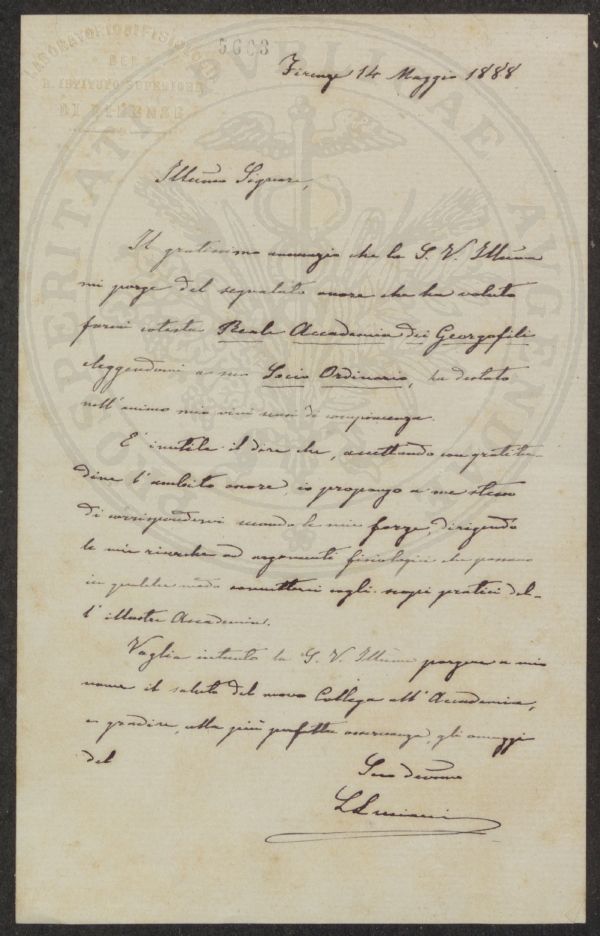 LABORATORIO DI FISIOLOGIA
DEL
R. ISTITUTO SUPERIORE
DI FIRENZE
5603
Firenze 14 Maggio 1888
Illustrmo Signore,
Il gratissimo annunzio che la S. V. Illma
mi porge del segnalato onore che ha voluto
farmi cotesta Reale Accademia dei Georgofili
eleggendomi a suo Socio Ordinario, ha destato
nell'animo mio vivi sensi di compiacenza.
È inutile il dire che, accettando con gratitu-
dine l'ambito onore, io propongo a me stesso
di corrispondervi secondo le mie forze, dirigendo
le mie ricerche ad argomenti fisiologici che possano
in qualche modo connettersi cogli scopi pratici del-
l'illustre Accademia.
Voglia intanto la S. V. Illma porgere a mio
nome il saluto del nuovo Collega all'Accademia,
e gradire, colla più perfetta osservanza, gli omaggi
del
Suo devmo
L Luciani
PROSPERITATI PVBLICAE AVGENDAE